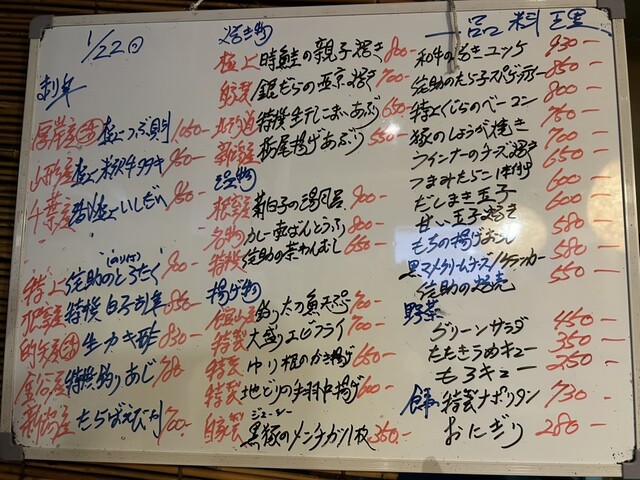 1/22(日)
刺身
厚岸産 活 極上つぶ刺 1,050-
山形産 極上 米沢牛タタキ 950-
千葉産 極上いしだい 850-
特上 佐助のとろたく (のり付) 900-
特撰白子刺身 850-
生カキ酢 830-
金谷産 特撰釣りあじ 780
新潟産 たらばえび刺 700-
焼き物
極上 時鮭の親子焼き 800-
自家製 銀だらの西京焼き 700-
北海道 特撰生干こまいあぶり 650-
新潟産 栃尾揚げあぶり 550-
温物
根室産 新白子の湯風呂 900-
名物 カレー煮ばんとうふ 800-
特撰 佐助の茶わんむし 650-
揚げ物
館山産 釣り太刀魚天ぷら 700-
特製 大盛りエビフライ 700-
特製 ゆり根のかき揚げ 650-
特製 地どりの手羽中揚げ 600-
自家製 黒豚のメンチカツ1枚 350-
ジューシー
一品料理
和牛の炙りユッケ 930-
佐助のたら子スパゲッティー 850-
特上くじらのベーコン 800-
豚のしょうが焼き 750-
ウインナーのチーズ焼き 700-
つまみたらこ 650-
だしまき玉子 600-
甘い玉子焼き 600-
もちの揚げおろし 580
黒マメクリームチーズ/クラッカー 580-
佐助の焼売 550-
野菜
グリーンサラダ 450-
たたきうめキュー 350-
もろキュー 250-
食事 特製ナポリタン 730-
おにぎり 280-